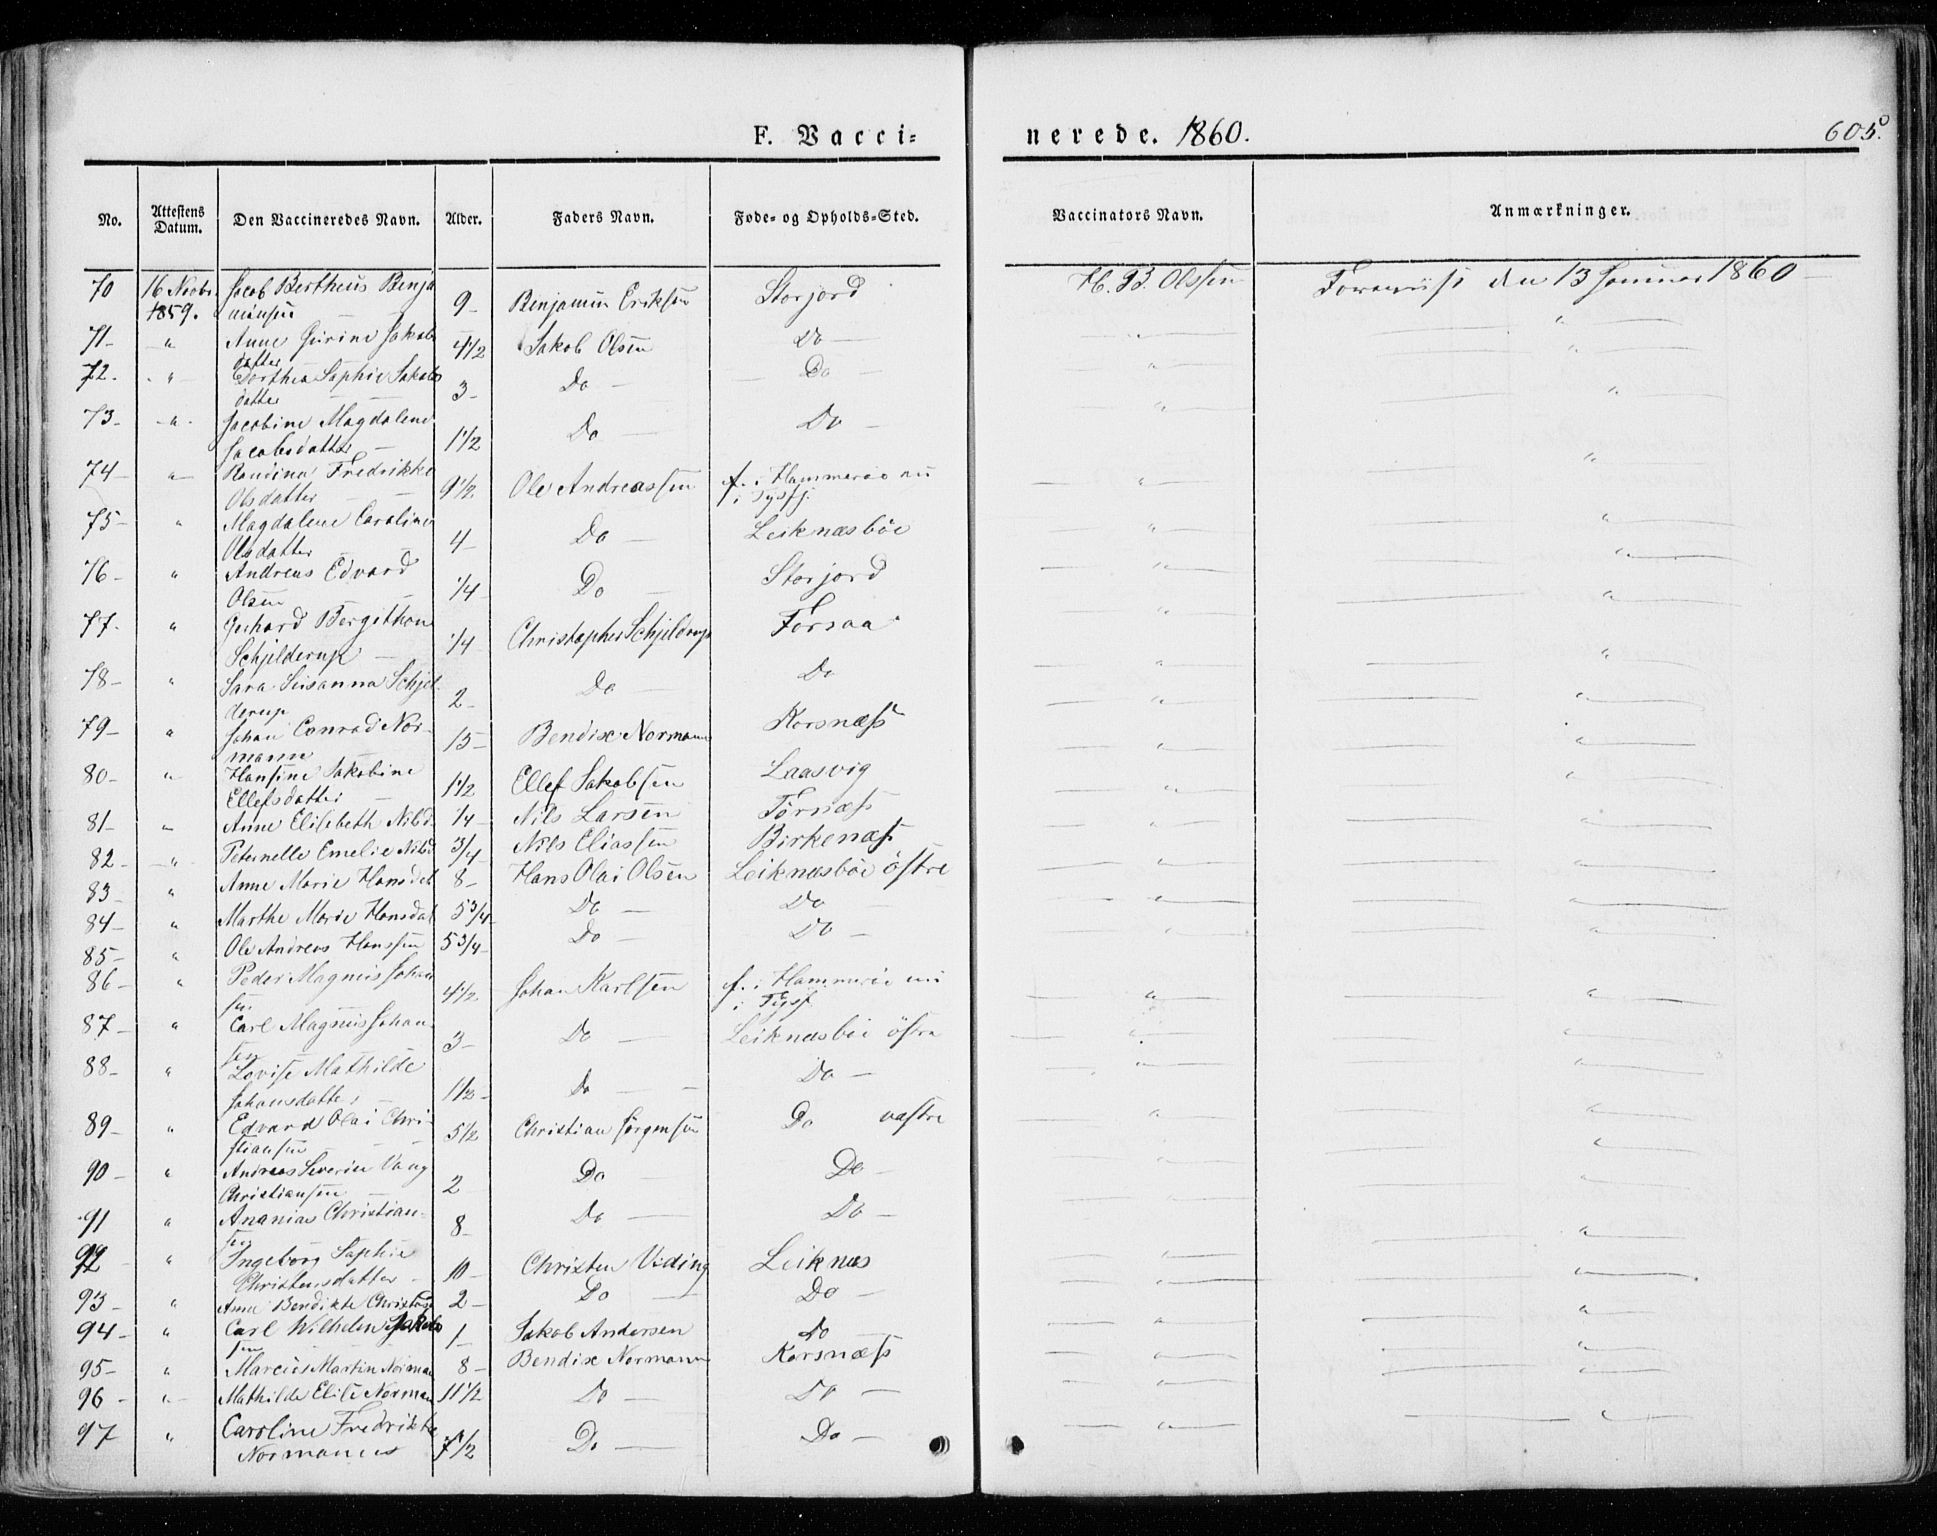 F. Vacci=
nerede. 1860.
605.
No.
Attestens Datum.
Den Vaccineredes Navn.
Alder.
Faders Navn.
Føde- og Opholds-Sted.
Vaccinators Navn.
Anmærkninger.
70 16 Novbr. Jacob Bertheus Benja
1859. minsen 9 – Benjamin Eriksen Storjord H. B. Olssen Forevist den 13 Januar 1860 –
71 – " Anne Gurine Jakobs
datter 4 1/2 Jakob Olsen Do – " "
72. " Dorthea Sophie Jakobs
datter 3 – Do – Do – " "
73 – " Jacobine Magdalene
Jacobsdatter – 1 1/2 Do – Do – " "
74 – " Randine Fredrikke
Olsdatter 9 1/2 Ole Andreassen f. i Hammerøe nu
i Tysfj. " "
75 – " Magdalene Caroline
Olsdatter 4 – Do – Leiknæsbøe " "
76 – " Andreas Edvard
Olsen 1/4 Do – Storjord " "
77. " Gerhard Bergithon
Schjelderup – 1/4 Christopher Schjelderup Forsaa " "
78 – " Sara Susanna Schjel-
derup 2 – Do – Do " "
79 – " Johan Conrad Nor-
mann 15 – Bendix Normann Korsnæss " "
80 – " Hansine Jakobine
Ellefsdatter – 1 1/2 Ellef Jakobsen Laasvig " "
81 – " Anne Elisebeth Nilsd. 1/4 – Nils Larsen Tørnæss " "
82 – " Peternelle Emelie Nilsd 3/4 – Nils Eliassen Birkenæss " "
83 – " Anne Marie Hansdat 8 – Hans Olai Olsen Leiknæsbøe østre " "
84 – " Marthe Marie Hansdat 5 3/4 – Do – Do – " "
85 – " Ole Andreas Hanssen 5 3/4 – Do – Do – " "
86 – " Peder Magnus Johan
sen 4 1/2 Johan Karlsen f. i Hammerøe nu
i Tysf. " "
87 – " Carl Magnus Johan-
sen 3 – Do – Leiknæsbøe østre " "
88 – " Lovise Mathilde
Johansdatter 1 1/2 – Do – Do – " "
89 – " Edvard Olai Chri-
stiansen 5 1/2 Christian Jørgensen Do væstre " "
90 – " Andreas Severin Vang
Christiansen 2 Do – Do – " "
91 " Ananias Christian-
sen 8 – Do – Do – " "
92 " Ingeborg Sophie
Christensdatter – 10 – Christen Viding Leiknæs " "
93 – " Anne Bendikte Christensd 2 – Do – Do – " "
94 – " Carl Wilhelm Jakob
sen 1 – Jakob Andersen Do " "
95 – " Marcus Martin Norman 8 – Bendix Normann Korsnæss " "
96 – " Mathilde Elise Norman 11 1/2 Do – Do – " "
97 " Caroline Fredrikke
Normann 7 1/2 Do – Do – " "